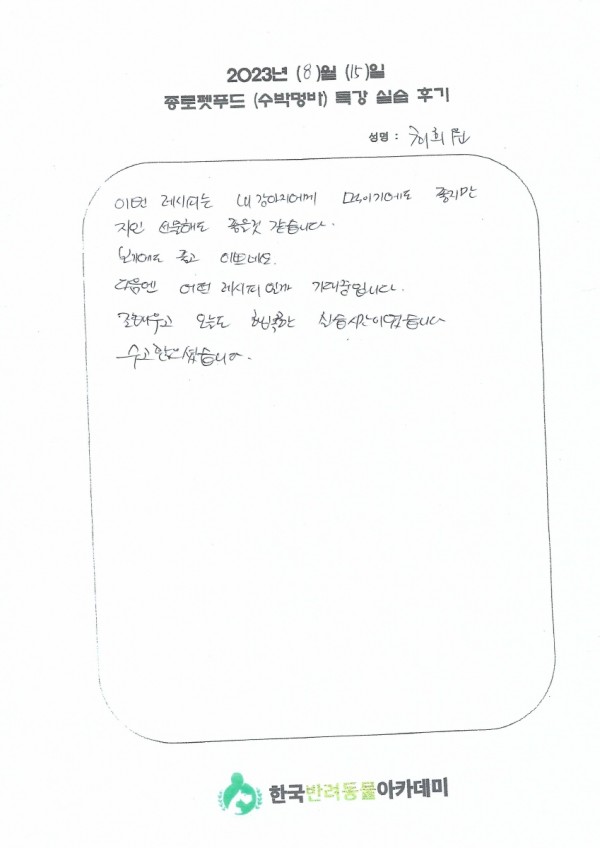 2023년 (8)월 (15)일
종로펫푸드 (수박멍바) 특강 실습 후기
성명 : 허희
이번 레시피는 내강아지에게 먹이기에도 좋지만
지인 선물해도 좋은것 같습니다.
보기에도 좋고 이쁘네요.
다음엔 어떤 레시피인가 기대중입니다.
오늘도 행복한 실습시간이었습니다
수고하셨습니다.
한국반려동물아카데미